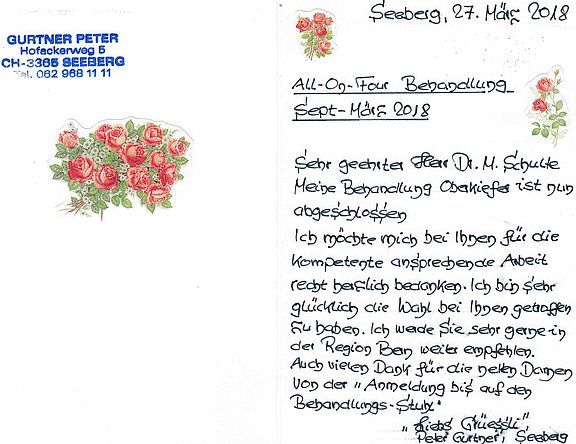 GURTNER PETER
Hofackerweg 5
CH-3365 SEEBERG
Tel. 062 968 11 11
Seeberg, 27. März 2018
All-On-Four Behandlung
Sept-März 2018
Sehr geehrter Herr Dr. M. Schulte
Meine Behandlung Oberkiefer ist nun
abgeschlossen
Ich möchte mich bei Ihnen für die
kompetente ansprechende Arbeit
recht herzlich bedanken. Ich bin sehr
glücklich die Wahl bei Ihnen getroffen
zu haben. Ich werde Sie sehr gerne in
der Region Bern weiter empfehlen.
Auch vielen Dank für die netten Damen
von der "Anmeldung bis auf den
Behandlungs-Stuhl"
"Liebi Grüessli"
Peter Gurtner, Seeberg